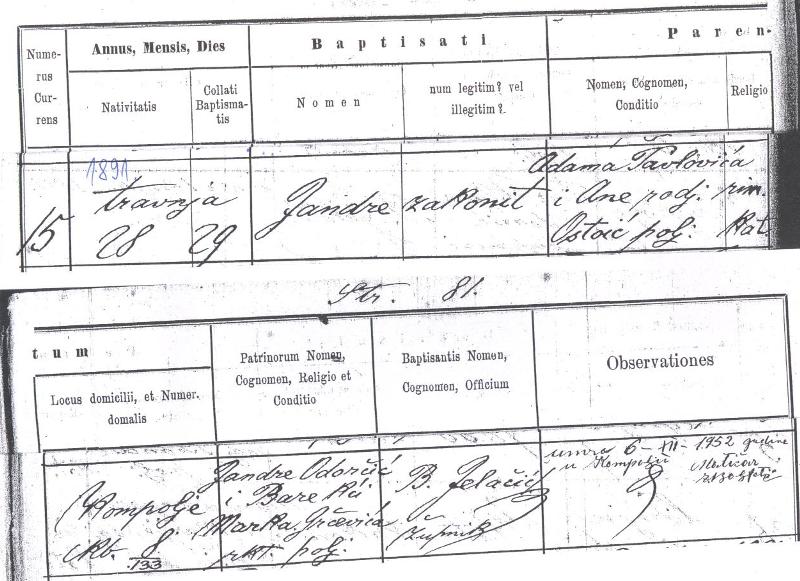 Nume-
rus
Cur-
rens
Annus, Mensis, Dies
Nativitatis
Collati
Baptisma-
tis
Baptisati
Nomen
num legitim? vel
illegitim?
Paren-
Nomen, Cognomen,
Conditio
Religio
1891
travnja
15
28 29
Jandre
zakonit
Adama Pavlovića
i Ane rodj.
Ostoić polj.
rim.
kat
Str. 81.
tum
Locus domicilii, et Numer.
domalis
Patrinorum Nomen,
Cognomen, Religio et
Conditio
Baptisantis Nomen,
Cognomen, Officium
Observationes
Kompolje
kb. 8
133
Jandre Odorčić
i Bare kći
Marka Grčevića
rkt. polj.
B. Jelačić
župnik
umro 6-XII-1952 godine
u Kompolju Matičar